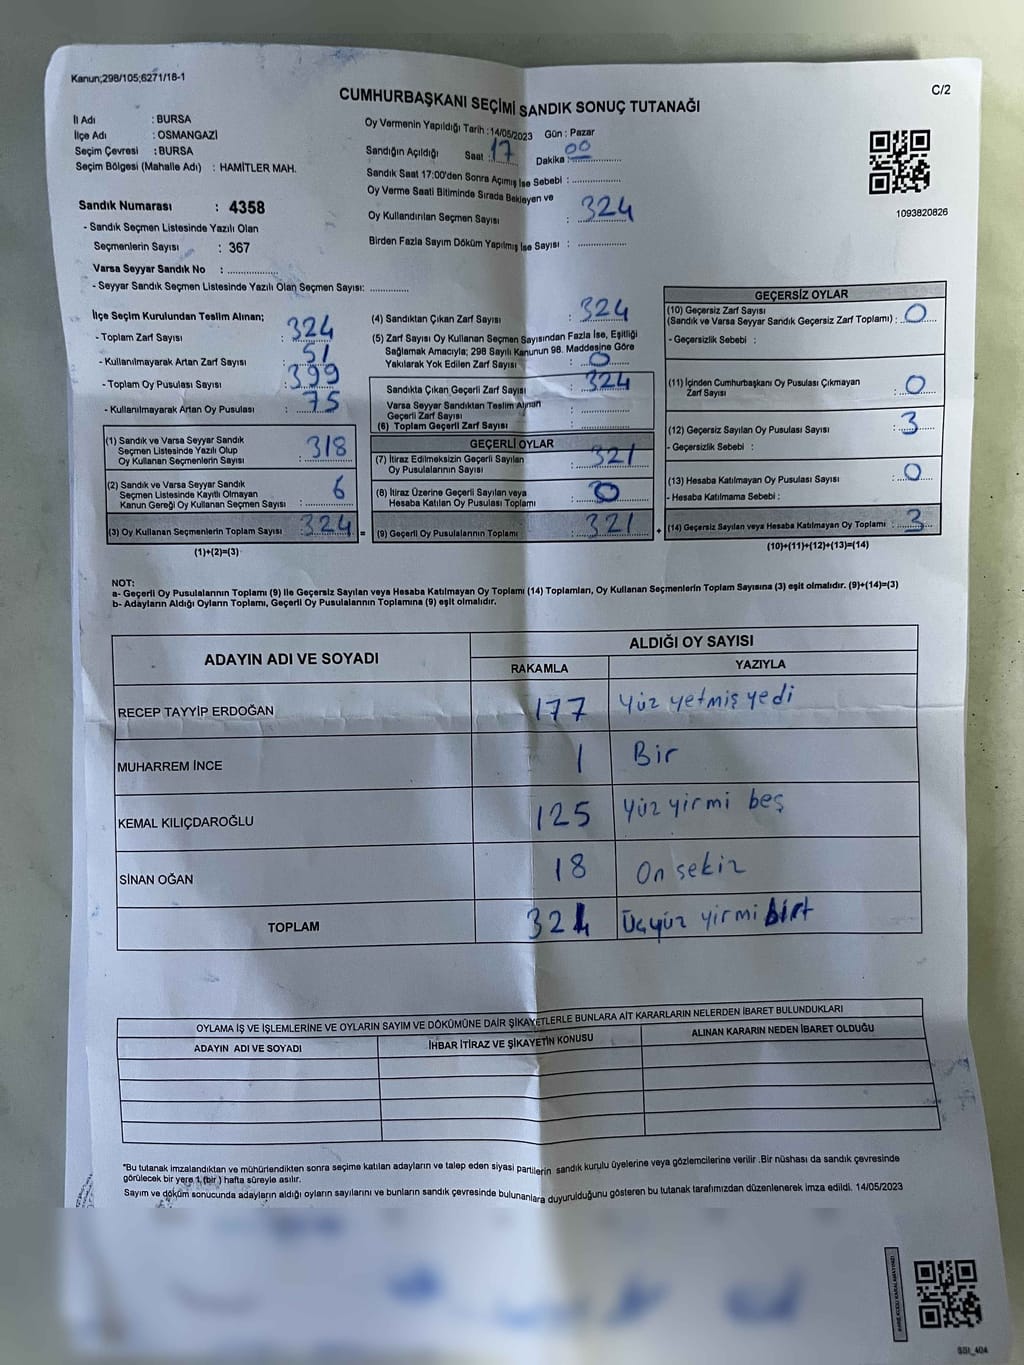 Kanun;298/105;6271/18-1
C/2
CUMHURBAŞKANI SEÇİMİ SANDIK SONUÇ TUTANAĞI
İl Adı : BURSA
İlçe Adı : OSMANGAZİ
Seçim Çevresi : BURSA
Seçim Bölgesi (Mahalle Adı) : HAMİTLER MAH.
Sandık Numarası : 4358
- Sandık Seçmen Listesinde Yazılı Olan
Seçmenlerin Sayısı : 367
Varsa Seyyar Sandık No : ..............
- Seyyar Sandık Seçmen Listesinde Yazılı Olan Seçmen Sayısı: ............
Oy Vermenin Yapıldığı Tarih : 14/05/2023 Gün : Pazar
Sandığın Açıldığı Saat : 17 Dakika : 00
Sandık Saat 17:00'den Sonra Açımış İse Sebebi : ................
Oy Verme Saati Bitiminde Sırada Bekleyen ve
Oy Kullandırılan Seçmen Sayısı : 324
Birden Fazla Sayım Döküm Yapılmış İse Sayısı : ................
1093820826
İlçe Seçim Kurulundan Teslim Alınan;
- Toplam Zarf Sayısı : 324
- Kullanılmayarak Artan Zarf Sayısı : 51
- Toplam Oy Pusulası Sayısı : 399
- Kullanılmayarak Artan Oy Pusulası : 75
(1) Sandık ve Varsa Seyyar Sandık
Seçmen Listesinde Yazılı Olup
Oy Kullanan Seçmenlerin Sayısı : 318
(2) Sandık ve Varsa Seyyar Sandık
Seçmen Listesinde Kayıtlı Olmayan
Kanun Gereği Oy Kullanan Seçmen Sayısı : 6
(3) Oy Kullanan Seçmenlerin Toplam Sayısı : 324 =
(1)+(2)=(3)
(4) Sandıktan Çıkan Zarf Sayısı : 324
(5) Zarf Sayısı Oy Kullanan Seçmen Sayısından Fazla İse, Eşitliği
Sağlamak Amacıyla; 298 Sayılı Kanunun 98. Maddesine Göre
Yakılarak Yok Edilen Zarf Sayısı : 0
Sandıkta Çıkan Geçerli Zarf Sayısı : 324
Varsa Seyyar Sandıktan Teslim Alınan
Geçerli Zarf Sayısı : ..............
(6) Toplam Geçerli Zarf Sayısı : ..............
GEÇERLİ OYLAR
(7) İtiraz Edilmeksizin Geçerli Sayılan
Oy Pusulalarının Sayısı : 321
(8) İtiraz Üzerine Geçerli Sayılan veya
Hesaba Katılan Oy Pusulası Toplamı : 0
(9) Geçerli Oy Pusulalarının Toplamı : 321 +
GEÇERSİZ OYLAR
(10) Geçersiz Zarf Sayısı
(Sandık ve Varsa Seyyar Sandık Geçersiz Zarf Toplamı) : 0
- Geçersizlik Sebebi :
(11) İçinden Cumhurbaşkanı Oy Pusulası Çıkmayan
Zarf Sayısı : 0
(12) Geçersiz Sayılan Oy Pusulası Sayısı : 3
- Geçersizlik Sebebi :
(13) Hesaba Katılmayan Oy Pusulası Sayısı : 0
- Hesaba Katılmama Sebebi :
(14) Geçersiz Sayılan veya Hesaba Katılmayan Oy Toplamı : 3
(10)+(11)+(12)+(13)=(14)
NOT:
a- Geçerli Oy Pusulalarının Toplamı (9) ile Geçersiz Sayılan veya Hesaba Katılmayan Oy Toplamı (14) Toplamları, Oy Kullanan Seçmenlerin Toplam Sayısına (3) eşit olmalıdır. (9)+(14)=(3)
b- Adayların Aldığı Oyların Toplamı, Geçerli Oy Pusulalarının Toplamına (9) eşit olmalıdır.
ADAYIN ADI VE SOYADI
ALDIĞI OY SAYISI
RAKAMLA YAZIYLA
RECEP TAYYİP ERDOĞAN 177 Yüz yetmiş yedi
MUHARREM İNCE 1 Bir
KEMAL KILIÇDAROĞLU 125 Yüz yirmi beş
SİNAN OĞAN 18 On sekiz
TOPLAM 321 Üçyüz yirmi
OYLAMA İŞ VE İŞLEMLERİNE VE OYLARIN SAYIM VE DÖKÜMÜNE DAİR ŞİKAYETLERLE BUNLARA AİT KARARLARIN NELERDEN İBARET BULUNDUKLARI
ADAYIN ADI VE SOYADI İHBAR İTİRAZ VE ŞİKAYETİN KONUSU ALINAN KARARIN NEDEN İBARET OLDUĞU
*Bu tutanak imzalandıktan ve mühürlendikten sonra seçime katılan adayların ve talep eden siyasi partilerin sandık kurulu üyelerine veya gözlemcilerine verilir .Bir nüshası da sandık çevresinde
görülecek bir yere 1 (bir ) hafta süreyle asılır.
Sayım ve döküm sonucunda adayların aldığı oyların sayılarını ve bunların sandık çevresinde bulunanlara duyurulduğunu gösteren bu tutanak tarafımızdan düzenlenerek imza edildi. 14/05/2023